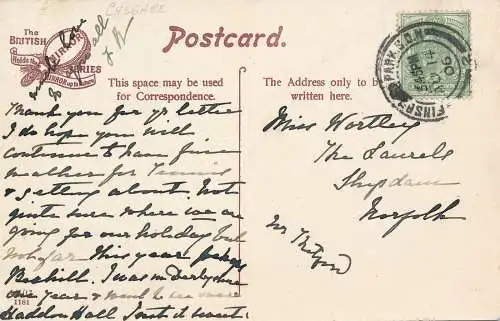 CHESHEE
The
BRITISH
Holds the
MIRROR
up to Nature
SERIES
Postcard.
This space may be used
for Correspondence.
The Address only to be
written here.
FINSBURY PARK STN.
06
Thank you for yr letter
I do hope you will
continue to have fine
weather for Tennis
& getting about. Not
quite sure where we are
going for our holiday but
not far this year perhaps
Bexhill. I was in Derbyshire
one year & went to see
Haddon Hall. Isnt it sweet.
love
to all
1181
Miss Wortley
The Laurels
Shipdam
Norfolk
Nr Thetford